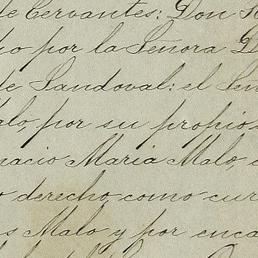 de Cervantes: Don
por la Señora D
de Sandoval: el Señ
alo, por su propio
nacio Maria Malo,
derecho, como cur
s Malo y por enca